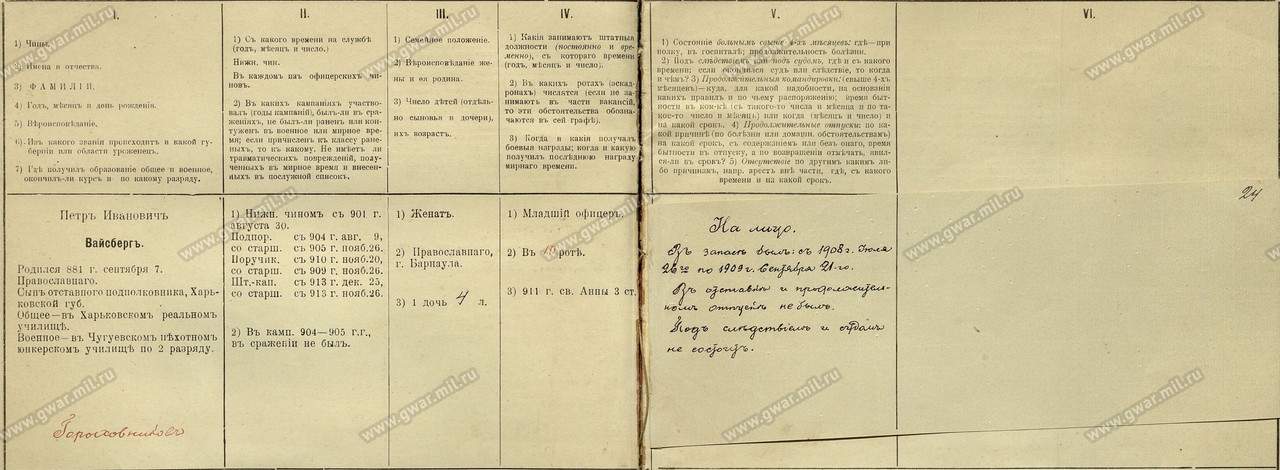 I.
1) Чины.
2) Имена и отчества.
3) ФАМИЛІИ.
4) Годъ, мѣсяцъ и день рожденія.
5) Вѣроисповѣданіе.
6) Изъ какого званія происходитъ и какой гу-
берніи или области уроженецъ.
7) Гдѣ получилъ образованіе общее и военное,
окончилъ-ли курсъ и по какому разряду.
II.
1) Съ какого времени на службѣ
(годъ, мѣсяцъ и число).
Нижн. чин.
Въ каждомъ изъ офицерскихъ чи-
новъ.
2) Въ какихъ кампаніяхъ участво-
валъ (годы кампаній), былъ-ли въ сра-
женіяхъ, не былъ-ли раненъ или кон-
туженъ въ военное или мирное вре-
мя; если причисленъ къ классу ране-
ныхъ, то къ какому. Не имѣетъ ли
травматическихъ поврежденій, полу-
ченныхъ въ мирное время и внесен-
ныхъ въ послужной списокъ.
III.
1) Семейное положеніе.
2) Вѣроисповѣданіе же-
ны и ея родина.
3) Число дѣтей (отдѣль-
но сыновья и дочери),
ихъ возрастъ.
IV.
1) Какія занимаютъ штатныя
должности (постоянно и вре-
менно), съ котораго времени
(годъ, мѣсяцъ и число).
2) Въ какихъ ротахъ (эскад-
ронахъ) числятся (если не за-
нимаютъ въ части вакансій,
то эти обстоятельства обозна-
чаются въ сей графѣ).
3) Когда и какія получалъ
боевыя награды; когда и какую
получилъ послѣднюю награду
мирнаго времени.
V.
1) Состояніе больнымъ свыше 4-хъ мѣсяцевъ: гдѣ—при
полку, въ госпиталѣ; продолжительность болѣзни.
2) Подъ слѣдствіемъ или подъ судомъ, гдѣ и съ какого
времени; если окончился судъ или слѣдствіе, то когда
и чѣмъ? 3) Продолжительныя командировки: (свыше 4-хъ
мѣсяцевъ)—куда, для какой надобности, на основаніи
какихъ правилъ и по чьему распоряженію; время быт-
ности въ ком-кѣ (съ такого-то числа и мѣсяца и по та-
кое-то число и мѣсяцъ) или когда (мѣсяцъ и число) и
на какой срокъ. 4) Продолжительные отпуски: по ка-
кой причинѣ (по болѣзни или домашн. обстоятельствамъ)
на какой срокъ, съ содержаніемъ или безъ онаго, время
бытности въ отпуску, а по возвращеніи отмѣчать, явил-
ся-ли въ срокъ? 5) Отсутствіе по другимъ какимъ ли-
бо причинамъ, напр. арестъ внѣ части, гдѣ, съ какого
времени и на какой срокъ.
VI.
Петръ Ивановичъ
Вайсбергъ.
Родился 881 г. сентября 7.
Православнаго.
Сынъ отставного подполковника, Харь-
ковской губ.
Общее—въ Харьковскомъ реальномъ
училищѣ.
Военное—въ Чугуевскомъ пѣхотномъ
юнкерскомъ училищѣ по 2 разряду.
1) Нижн. чиномъ съ 901 г.
августа 30.
Подпор. съ 904 г. авг. 9,
со старш. съ 905 г. нояб. 26.
Поручик. съ 910 г. нояб. 20,
со старш. съ 909 г. нояб. 26.
Шт.-кап. съ 913 г. дек. 25,
со старш. съ 913 г. нояб. 26.
2) Въ камп. 904—905 г.г.,
въ сраженіи не былъ.
1) Женатъ.
2) Православнаго,
г. Барнаула.
3) 1 дочь 4 л.
1) Младшій офицеръ.
2) Въ 10 ротѣ.
3) 911 г. св. Анны 3 ст.
24
На лицо.
Въ запасѣ былъ: съ 1908 г. Іюля
26го по 1909 г. Сентября 21-го.
Въ отставкѣ и продолжитель-
номъ отпускѣ не былъ.
Подъ слѣдствіемъ и судомъ
не состоитъ.
www.gwar.mil.ru